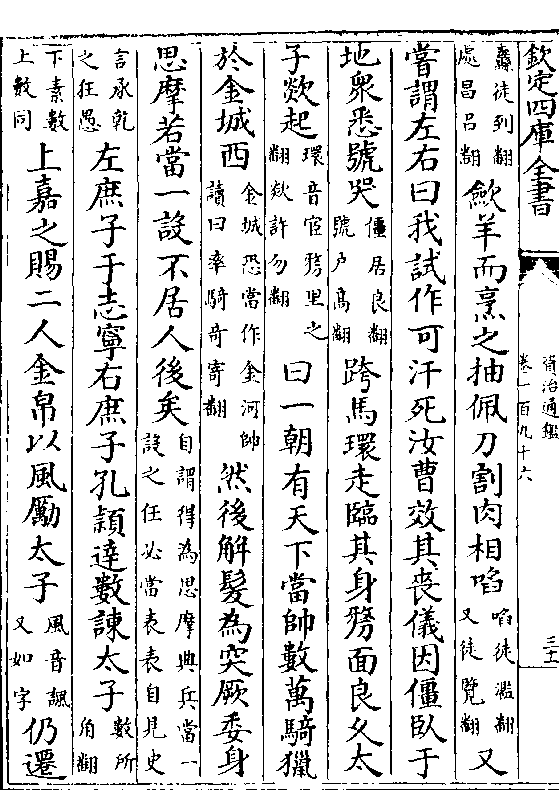 欽定四庫全書
資治通鑑
卷一百九十六
三十
纛徒到翻
處昌呂翻
歛羊而烹之抽佩刀割肉相啗
啗徒濫翻
又徒覽翻
又
嘗謂左右曰我試作可汗死汝曹效其喪儀因僵臥于
地衆悉號哭
僵居良翻
號戶高翻
跨馬環走臨其身剺面良久太
子欻起
環音宦剺里之
翻欻許勿翻
曰一朝有天下當帥數萬騎獵
於金城西
金城恐當作金河帥
讀曰率騎奇寄翻
然後解髮為突厥委身
思摩若當一設不居人後矣
自謂得為思摩典兵當一
設之任必當表表自見史
言承乾
之狂愚
左庶子于志寧右庶子孔頴達數諫太子
數所
角翻
下素數
上數同
上嘉之賜二人金帛以風勵太子
風音諷
又如字
仍遷